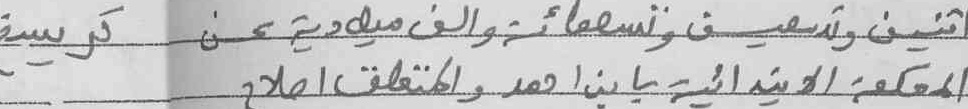 اثنين وتسعين وتسعمائة والف ميلادية عن كر
المحكمة الابتدائية بابن احمد والمتعلق اصلاح